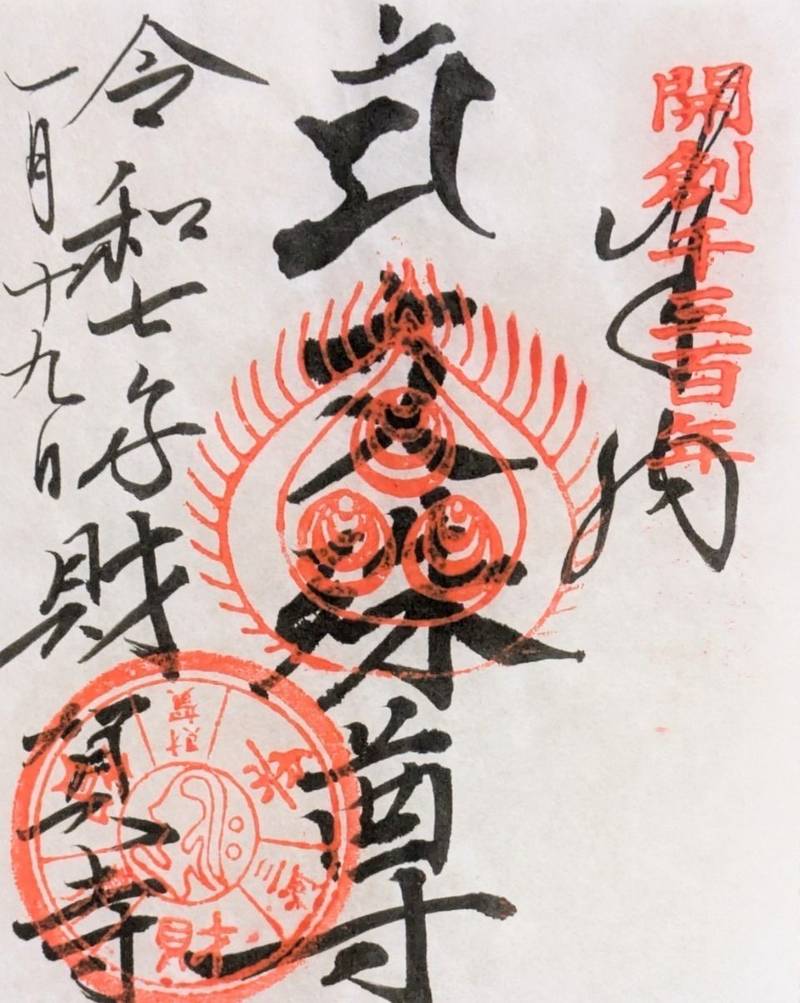 開創千三百年
奉拝
文殊尊
令和七年
一月十九日
財賀寺
財賀